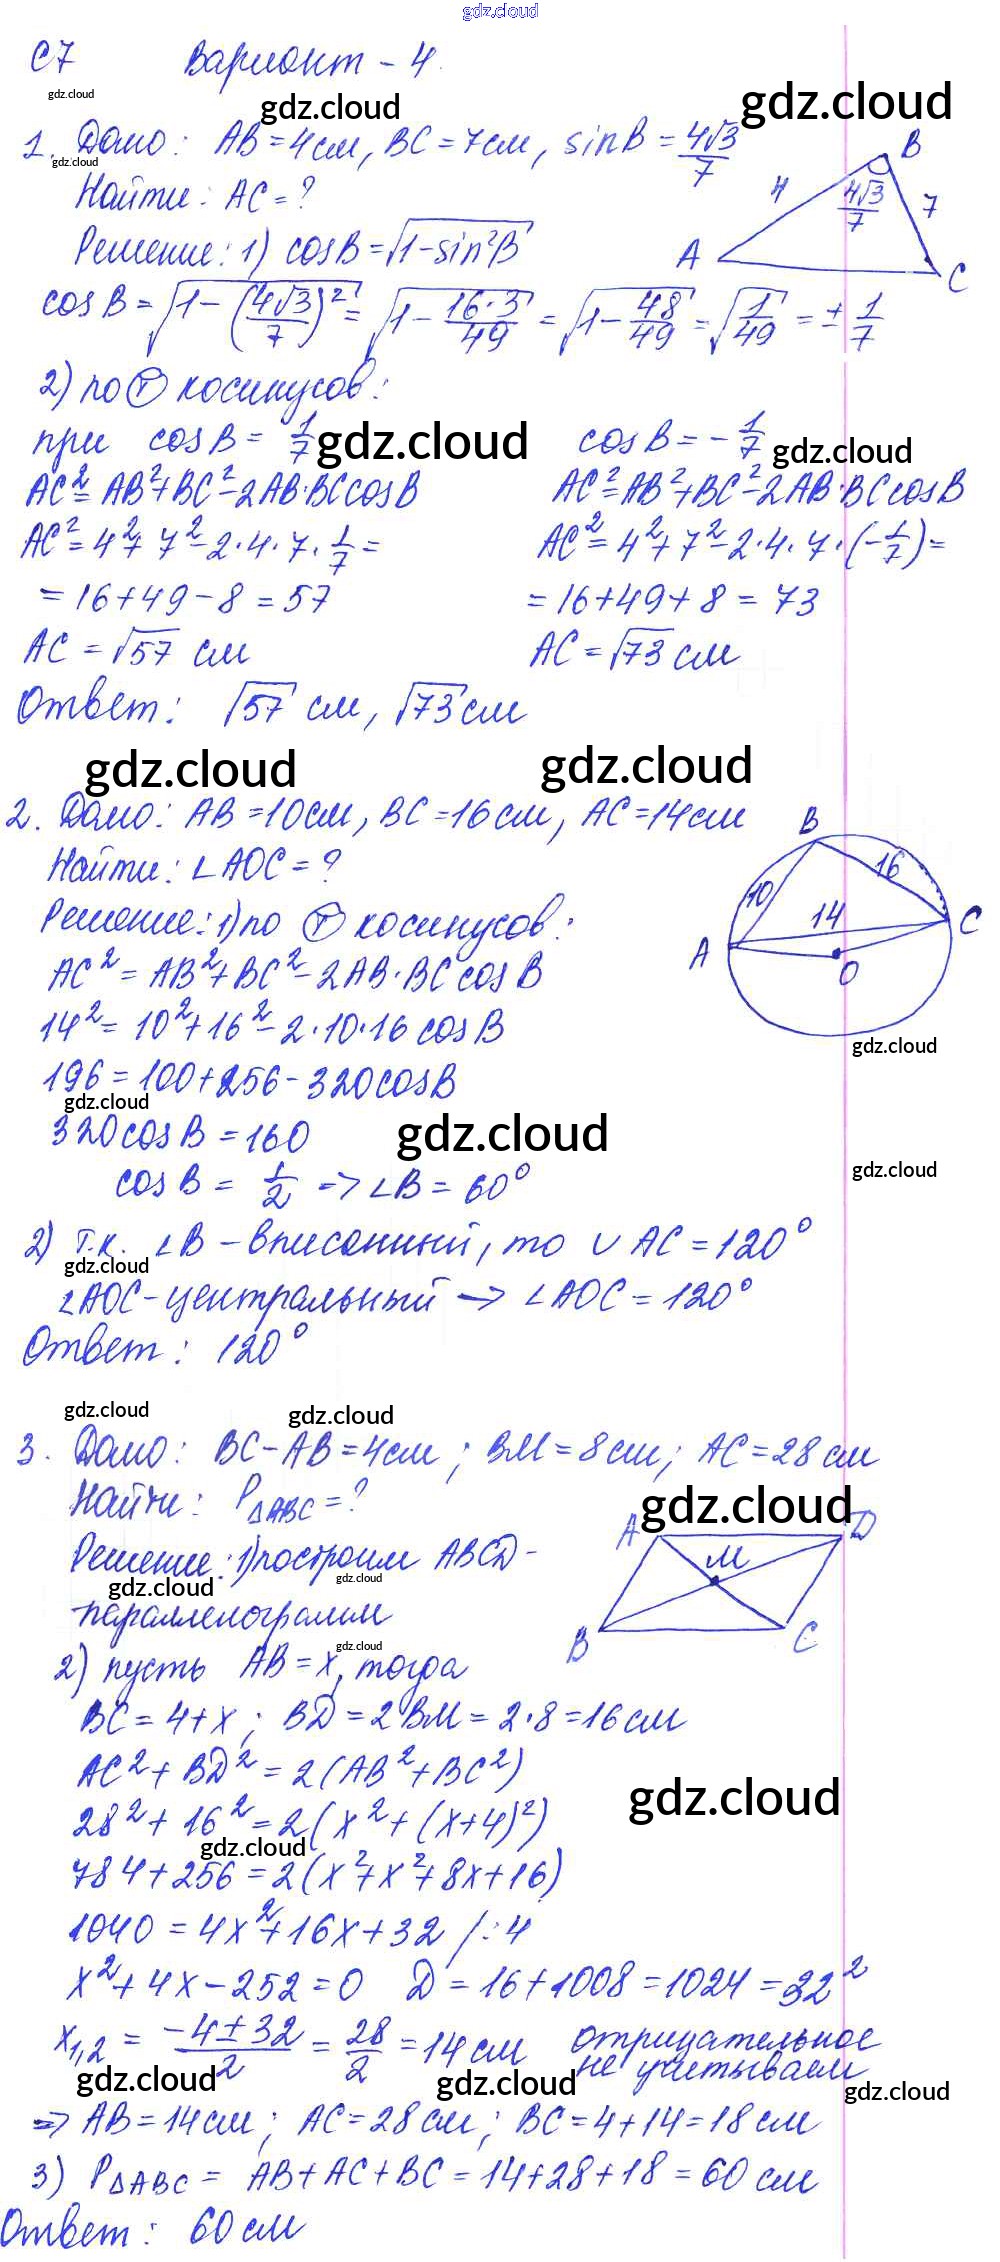 gdz.cloud
С7 Вариант - 4.
gdz.cloud gdz.cloud gdz.cloud
1. Дано: AB = 4см, BC = 7см, sinB = 4√3/7
gdz.cloud
Найти: AC = ?
B
4 4√3/7 7
A C
Решение: 1) cosB = √(1-sin²B)
cosB = √(1-(4√3/7)²) = √(1-16·3/49) = √(1-48/49) = √(1/49) = ± 1/7
2) по Ⓣ косинусов:
при cosB = 1/7 gdz.cloud cosB = - 1/7 gdz.cloud
AC² = AB²+BC²-2AB·BC cosB AC² = AB²+BC²-2AB·BC cosB
AC² = 4²+7²-2·4·7·1/7 = AC² = 4²+7²-2·4·7·(-1/7) =
= 16+49-8 = 57 = 16+49+8 = 73
AC = √57 см AC = √73 см
Ответ: √57 см, √73 см
gdz.cloud gdz.cloud
2. Дано: AB = 10см, BC = 16см, AC = 14см
Найти: ∠AOC = ?
B
10 16
14
A C
O
Решение: 1) по Ⓣ косинусов:
AC² = AB²+BC²-2AB·BC cosB
14² = 10²+16²-2·10·16 cosB
gdz.cloud
196 = 100+256-320cosB
gdz.cloud
320cosB = 160 gdz.cloud
gdz.cloud
cosB = 1/2 => ∠B = 60°
2) т.к. ∠B - вписанный, то ∪ AC = 120°
gdz.cloud
∠AOC - центральный -> ∠AOC = 120°
Ответ: 120°
gdz.cloud gdz.cloud
3. Дано: BC - AB = 4см; BM = 8см; AC = 28см
Найти: P△ABC = ? gdz.cloud
A D
M
B C
Решение: 1) построим ABCD -
gdz.cloud gdz.cloud
параллелограмм
gdz.cloud
2) пусть AB = x, тогда
BC = 4+x; BD = 2BM = 2·8 = 16см
AC²+BD² = 2(AB²+BC²)
gdz.cloud
28²+16² = 2(x²+(x+4)²)
gdz.cloud
784+256 = 2(x²+x²+8x+16)
1040 = 4x²+16x+32 /:4
x²+4x-252 = 0 D = 16+1008 = 1024 = 32²
x1,2 = (-4±32)/2 = 28/2 = 14см отрицательное
не учитываем
gdz.cloud gdz.cloud gdz.cloud
=> AB = 14см; AC = 28см; BC = 4+14 = 18см
3) P△ABC = AB+AC+BC = 14+28+18 = 60см
Ответ: 60см